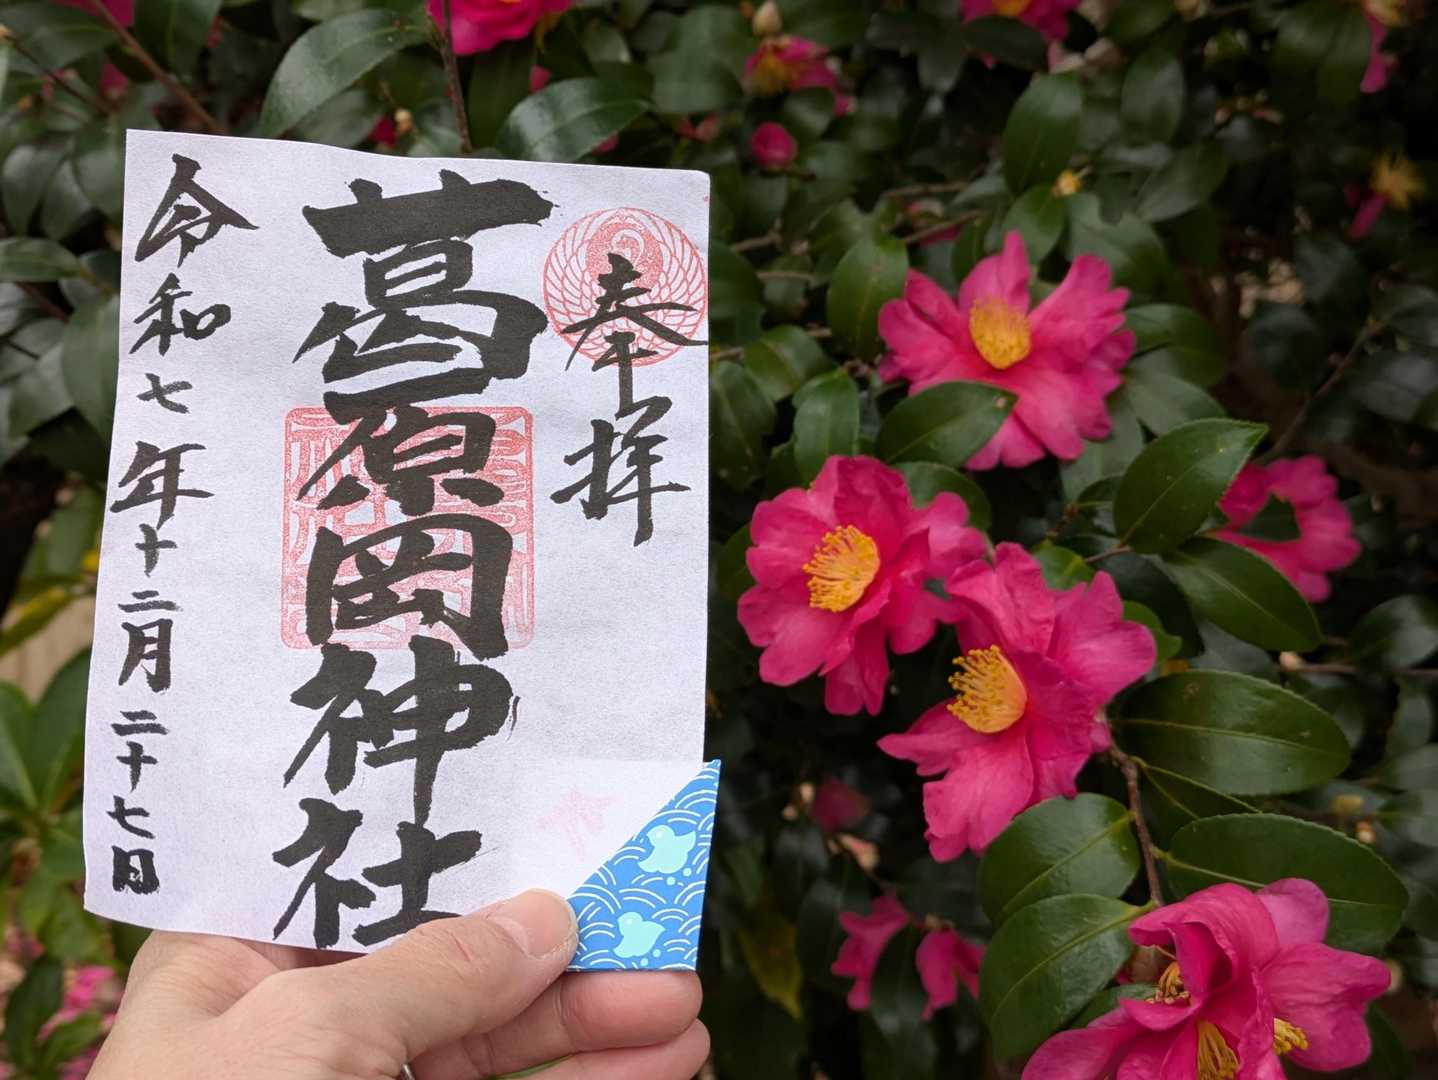 奉拝
葛原岡神社
令和七年十二月二十七日